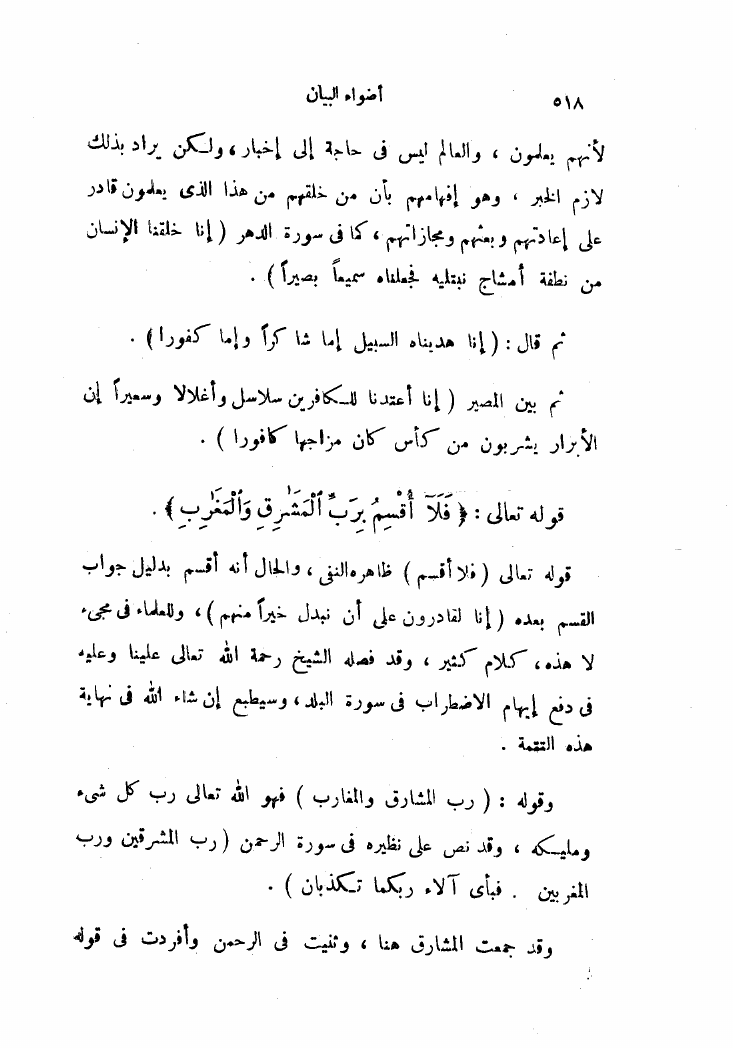 ٥١٨ أضواء البيان
لأنهم يعلمون ، والعالم ليس فى حاجة إلى إخبار ، ولكن يراد بذلك
لازم الخبر ، وهو إفهامهم بأن من خلقهم من هذا الذى يعلمون قادر
على إعادتهم وبعثهم ومجازاتهم ، كما فى سورة الدهر ( إنا خلقنا الإنسان
من نطفة أمشاج نبتليه فجعلناه سميعاً بصيراً ) .
ثم قال : ( إنا هديناه السبيل إما شاكراً وإما كفورا ) .
ثم بين المصير ( إنا أعتدنا للكافرين سلاسل وأغلالا وسعيراً إن
الأبرار يشربون من كأس كان مزاجها كافورا ) .
قوله تعالى : ﴿ فَلَآ أُقْسِمُ بِرَبِّ ٱلْمَشَٰرِقِ وَٱلْمَغَٰرِبِ ﴾ .
قوله تعالى ( فلا أقسم ) ظاهره النفى ، والحال أنه أقسم بدليل جواب
القسم بعده ( إنا لقادرون على أن نبدل خيراً منهم ) ، وللعلماء فى مجىء
لا هذه ، كلام كثير ، وقد فصله الشيخ رحمة الله تعالى علينا وعليه
فى دفع إيهام الاضطراب فى سورة البلد ، وسيطبع إن شاء الله فى نهاية
هذه التتمة .
وقوله : ( رب المشارق والمغارب ) فهو الله تعالى رب كل شىء
ومليكه ، وقد نص على نظيره فى سورة الرحمن ( رب المشرقين ورب
المغربين . فبأى آلاء ربكما تكذبان ) .
وقد جمعت المشارق هنا ، وثنيت فى الرحمن وأفردت فى قوله